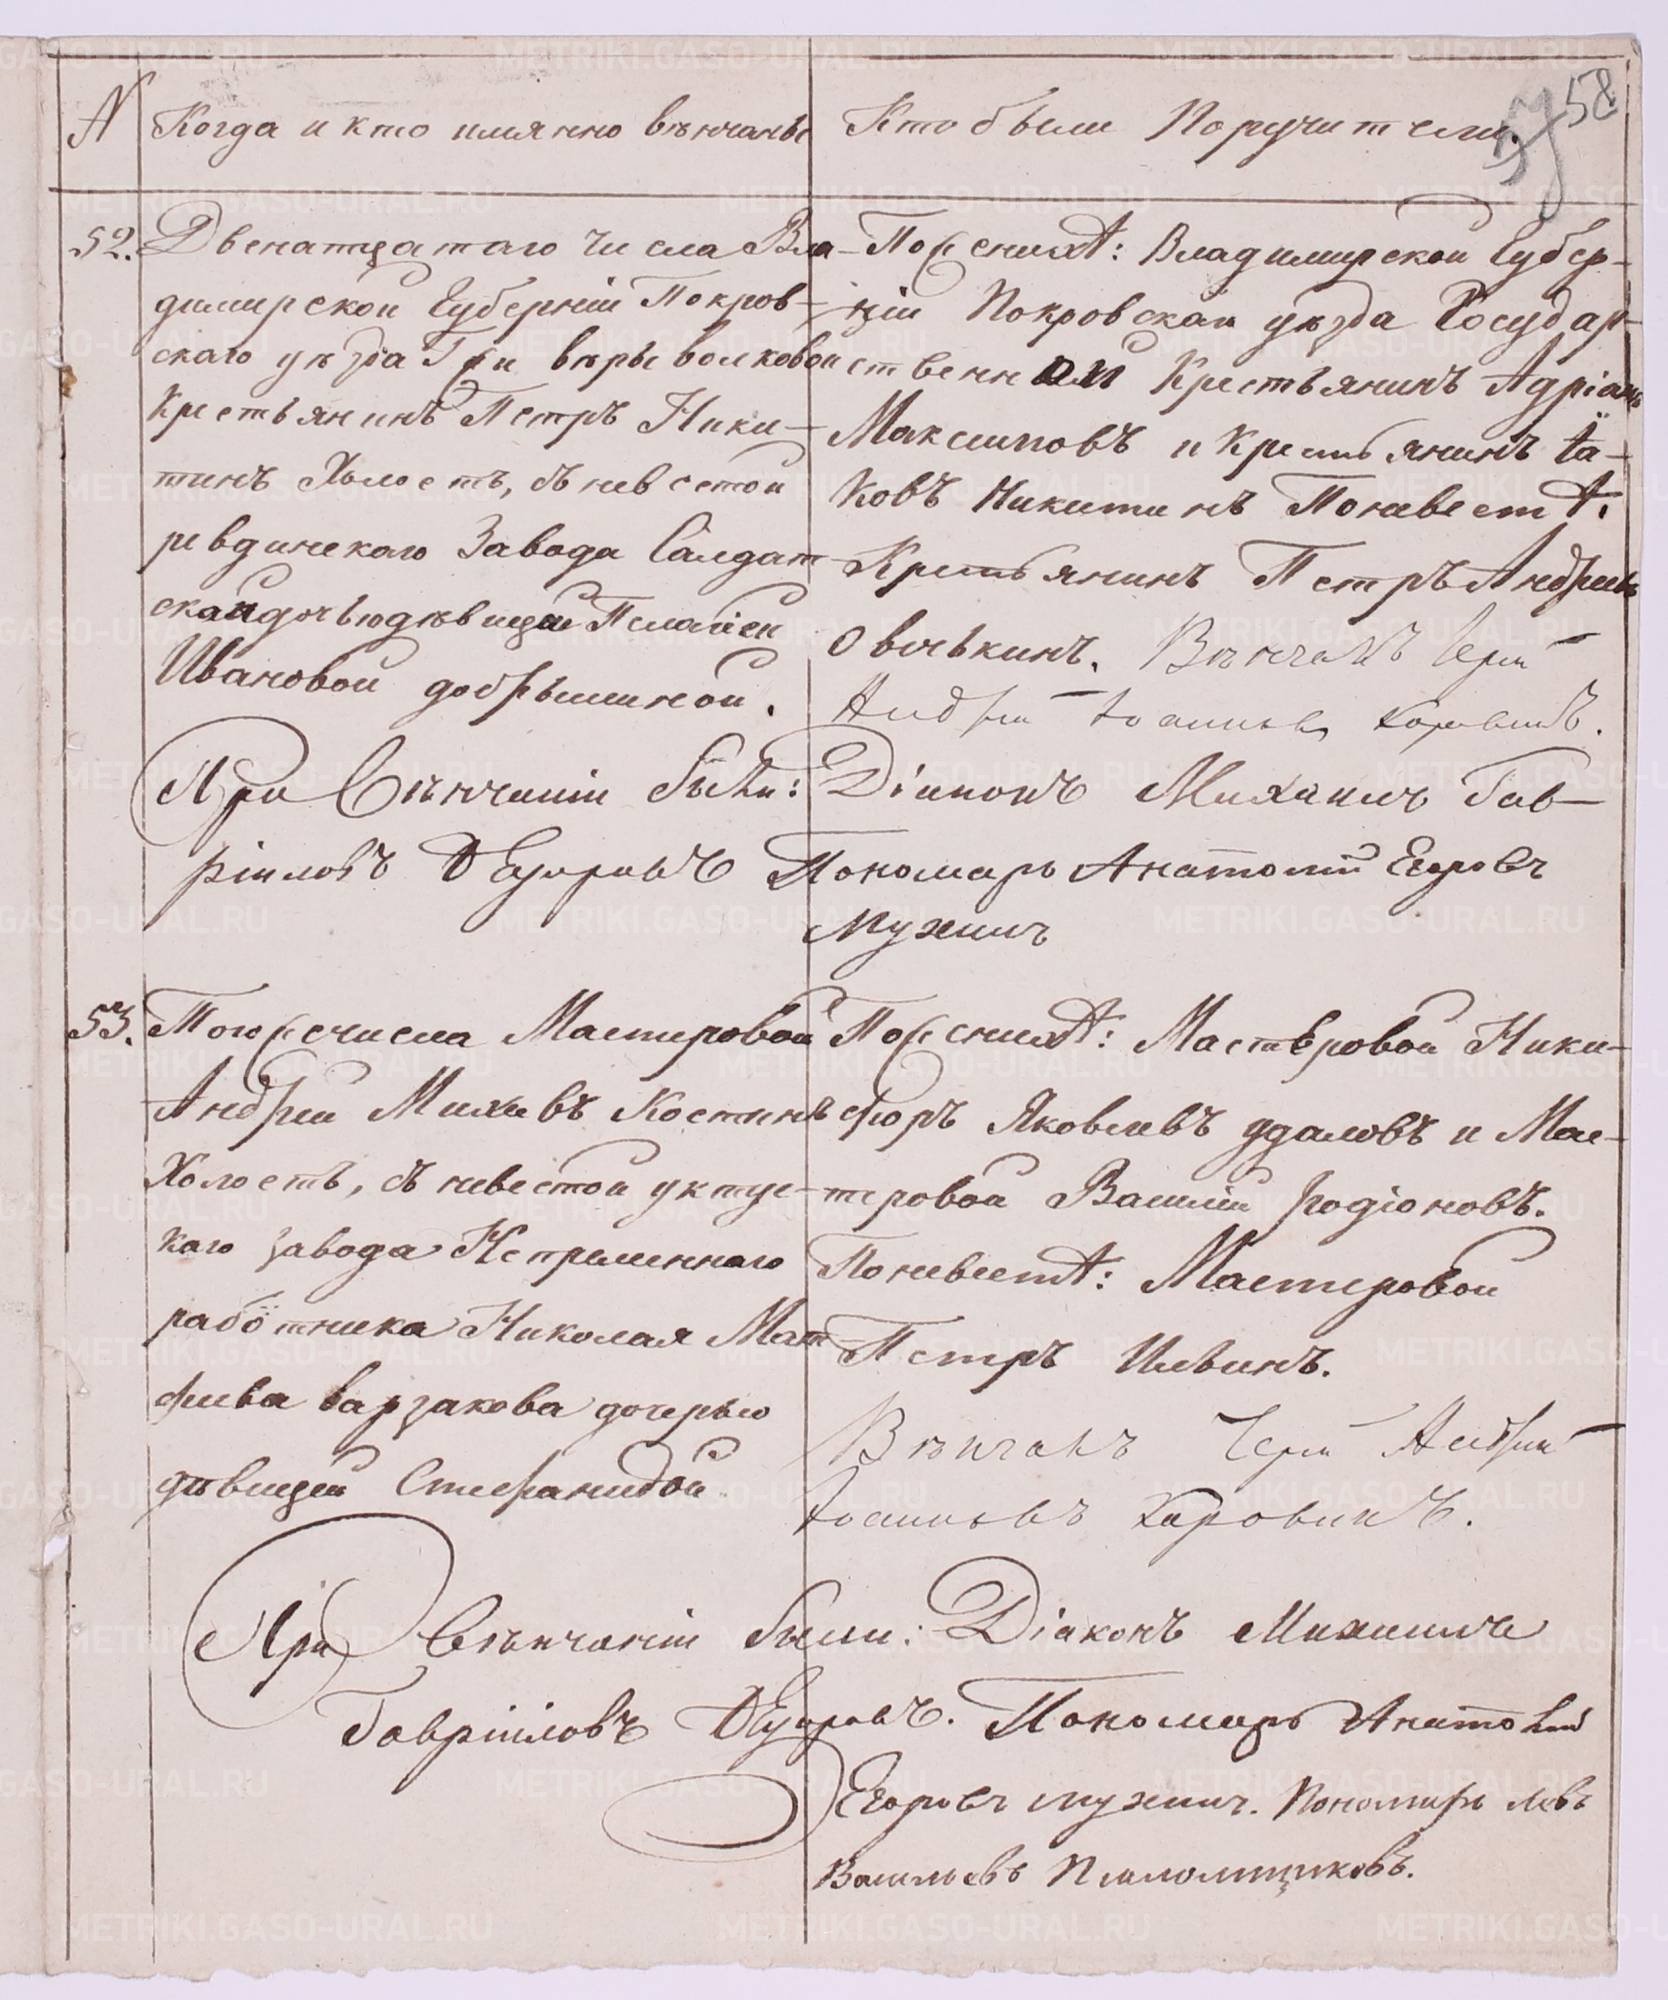 N
Когда и кто имянно венчаны
Кто были Поручители.
58
52.
Двенатцатаго числа Вла-
димирской Губерніи Покров-
скаго уѣзда Гри веры волковой
Крестьянинъ Петръ Ники-
тинъ Холостъ, съ невестой
ревдинскаго Завода Салдат
ской дочьюдѣвицей Пелагіей
Ивановой добрышиной.
По женихѣ: Владимирской Губер-
ніи Покровскаи уѣзда Государ-
ственной Крестьянинъ Адріанъ
Максимовъ и Крестьянинъ Iа-
ковъ Никитинъ По невестѣ.
Крестьянинъ Петръ Андреевъ
Овечькинъ. Вѣнчалъ Іерей
Андрей Іоанновъ Коровинъ.
При Вѣнчаніи были: Діаконъ Михаилъ Гав-
ріиловъ Пономарь Анатолій Егоровъ
Мухинъ
53.
Тогоже числа Мастеровой
Андрей Михеевъ Костинъ
Холостъ, съ невестой уктус-
каго завода Непременнаго
работника Николая Мат
феева варзакова дочерью
дѣвицей Стефанидой
По женихѣ: Мастеровой Ники-
форъ Яковлевъ удаловъ и Мас-
теровой Василій родіоновъ.
По невестѣ: Мастеровой
Петръ Ильинъ.
Вѣнчалъ Іерей Андрей
Іоанновъ Коровинъ.
При Вѣнчаніи были: Діаконъ Михаилъ
Гавріиловъ Пономарь Анатолій
Егоровъ Мухинъ. Пономарь Левъ
Васильевъ Псаломщиковъ.
METRIKI.GASO-URAL.RU